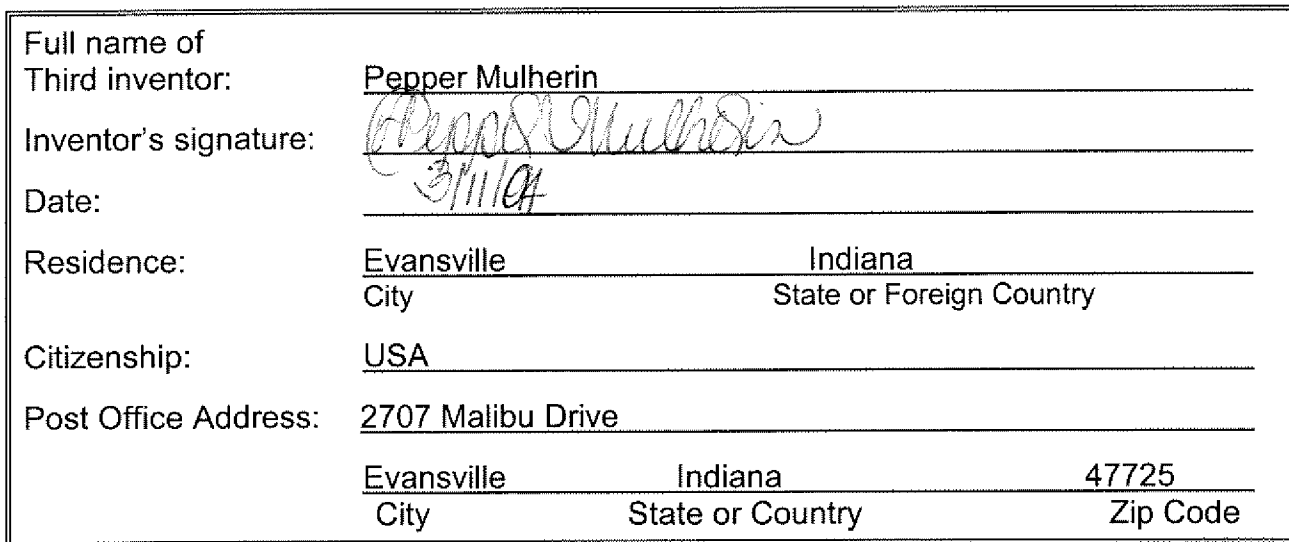 Full name of
Third inventor: Pepper Mulherin
Inventor's signature: Pepper Mulherin
Date: 3/11/04
Residence: Evansville Indiana
City State or Foreign Country
Citizenship: USA
Post Office Address: 2707 Malibu Drive
Evansville Indiana 47725
City State or Country Zip Code